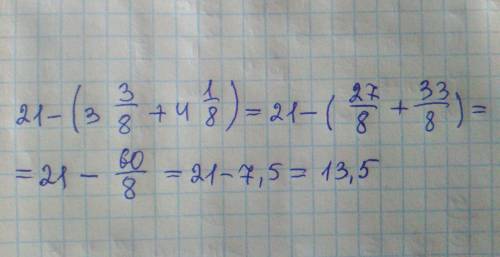 21-(3 3/8 + 4 1/8) = 21-(27/8 + 33/8) =
= 21 - 60/8 = 21-7,5 = 13,5